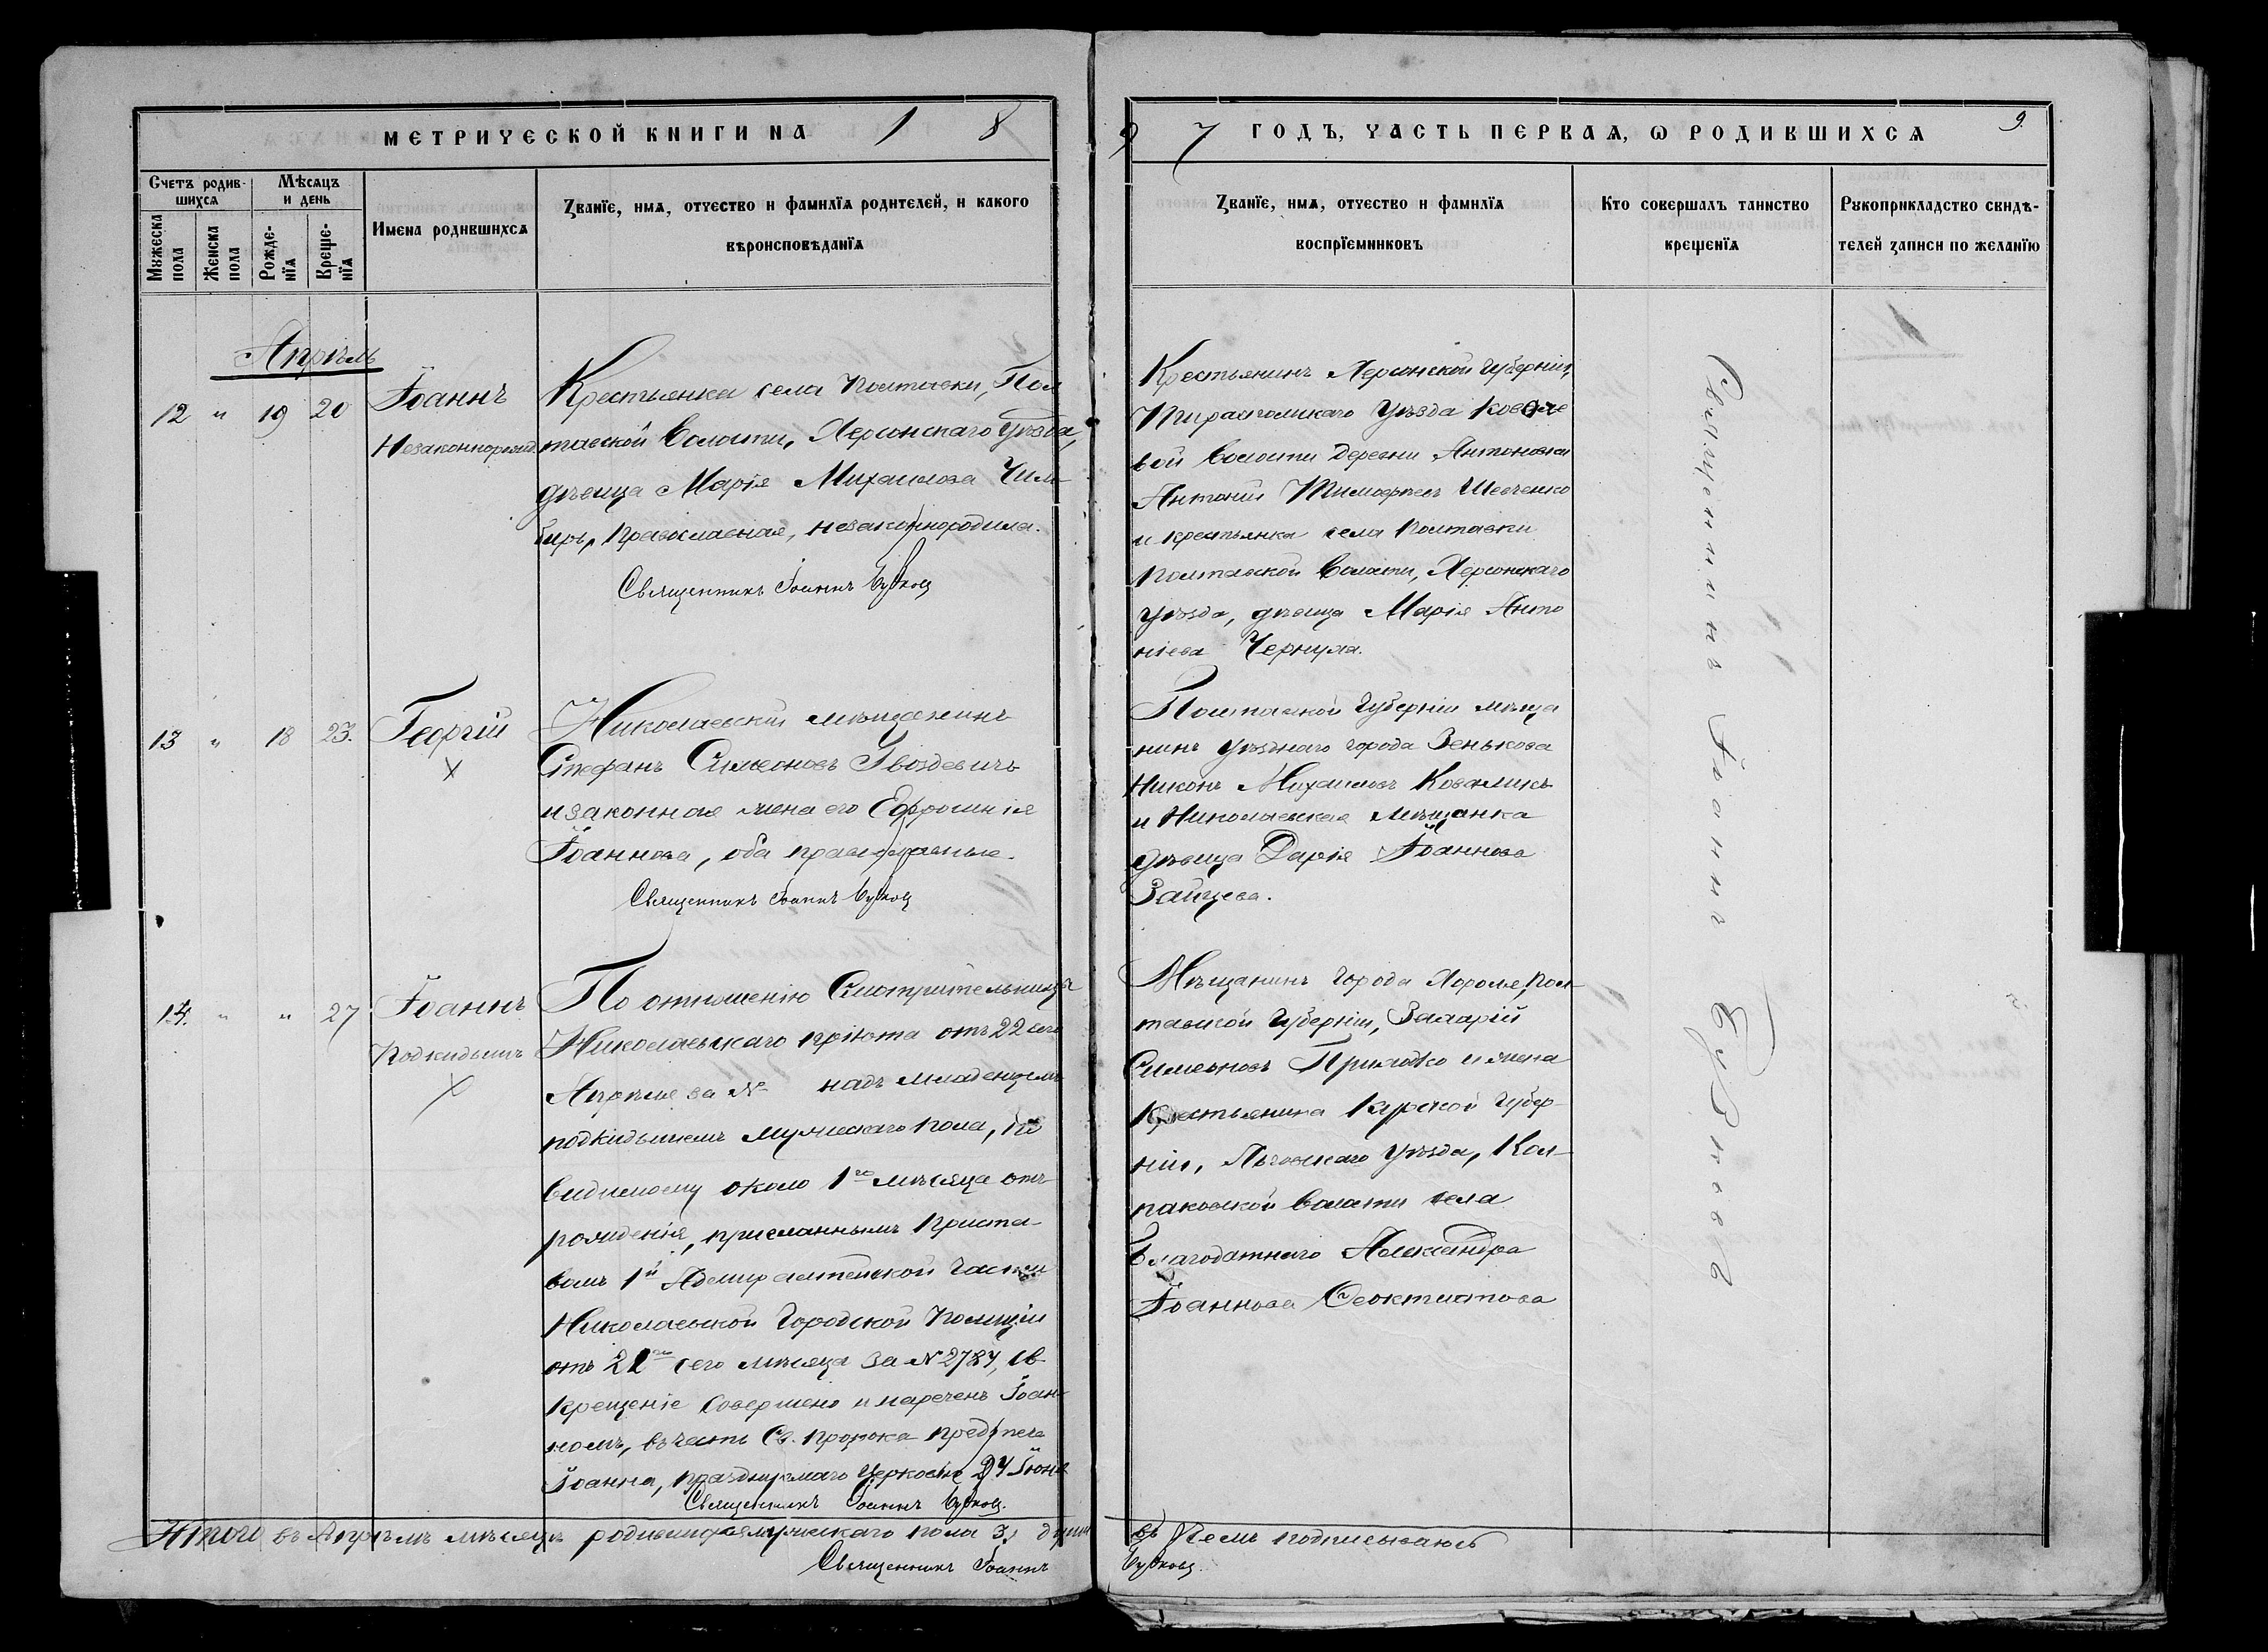 МЕТРИЧЕСКОЙ КНИГИ НА 1 8
9 7 ГОДЪ, ЧАСТЬ ПЕРВАѦ, Ѡ РОДИВШИХСѦ 9.
Счетъ родив-
шихсѧ
Мужеска
пола
Женска
пола
Мѣсѧцъ
и день
Рожде-
нїѧ
Креще-
нїѧ
Имена родившихсѧ
Званїе, имѧ, отчество и фамилїѧ родителей, и какого
вѣроисповѣданїѧ
Званїе, имѧ, отчество и фамилїѧ
воспрїемниковъ
Кто совершалъ таинство
крещенїѧ
Рукоприкладство свидѣ-
телей записи по желанїю
Апрѣль
12 " 19 20
Іоаннъ
Незаконнорожд.
Крестьянка села Полтавки, Пол
тавской волости, Херсонскаго уѣзда,
дѣвица Марія Михаилова Чем-
бирь, православная, незаконнородила.
Священникъ Іоаннъ
Крестьянинъ Херсонской губерніи,
Тирасполскаго уѣзда
вой волости деревни Антоновки
Антоній Тимофеевъ Шевченко
и крестьянка села Полтавки
Полтавской волости, Херсонскаго
уѣзда, дѣвица Марія Анто
ніева
13 " 18 23.
Георгій
Х
Николаевскій мѣщанинъ
Стефанъ Симеоновъ Гвоздевичъ
и законная жена его Ефросинія
Іоаннова, оба православные.
Священникъ Іоаннъ
Полтавской губерніи мѣща
нинъ уѣзднаго города Зенькова
Никонъ Михаиловъ Коваликъ
и Николаевская мѣщанка
дѣвица Дарія Іоаннова
Зайцева.
14. " " 27
Іоаннъ
Подкидышъ
Х
По отношенію Смотрительницы
Николаевскаго пріюта отъ 22 сего
Апрѣля за № надъ младенцемъ
подкидышемъ мужескаго пола, по
видимому около 1го мѣсяца отъ
рожденія, присланнымъ приста-
вомъ 1й Адмиралтейской части
Николаевской городской полиціи
отъ 22го сего мѣсяца за № 2784, св.
крещеніе совершено и нареченъ Іоан-
номъ, въ честь Св. пророка предтечи
Іоанна, празднуемаго церковью 24 Іюня
Священникъ Іоаннъ
Мѣщанинъ города Хороля, Пол-
тавской губерніи, Захарій
Симеоновъ и жена
крестьянина Курской губер-
ніи, Льговскаго уѣзда, Кол-
паковской волости села
Благодатнаго Александра
Іоаннова Феоктистова
Священникъ Іоаннъ
Итого въ Апрѣлѣ мѣсяцѣ родившихся мужескаго пола 3, души
въ чемъ подписываюсь
Священникъ Іоаннъ